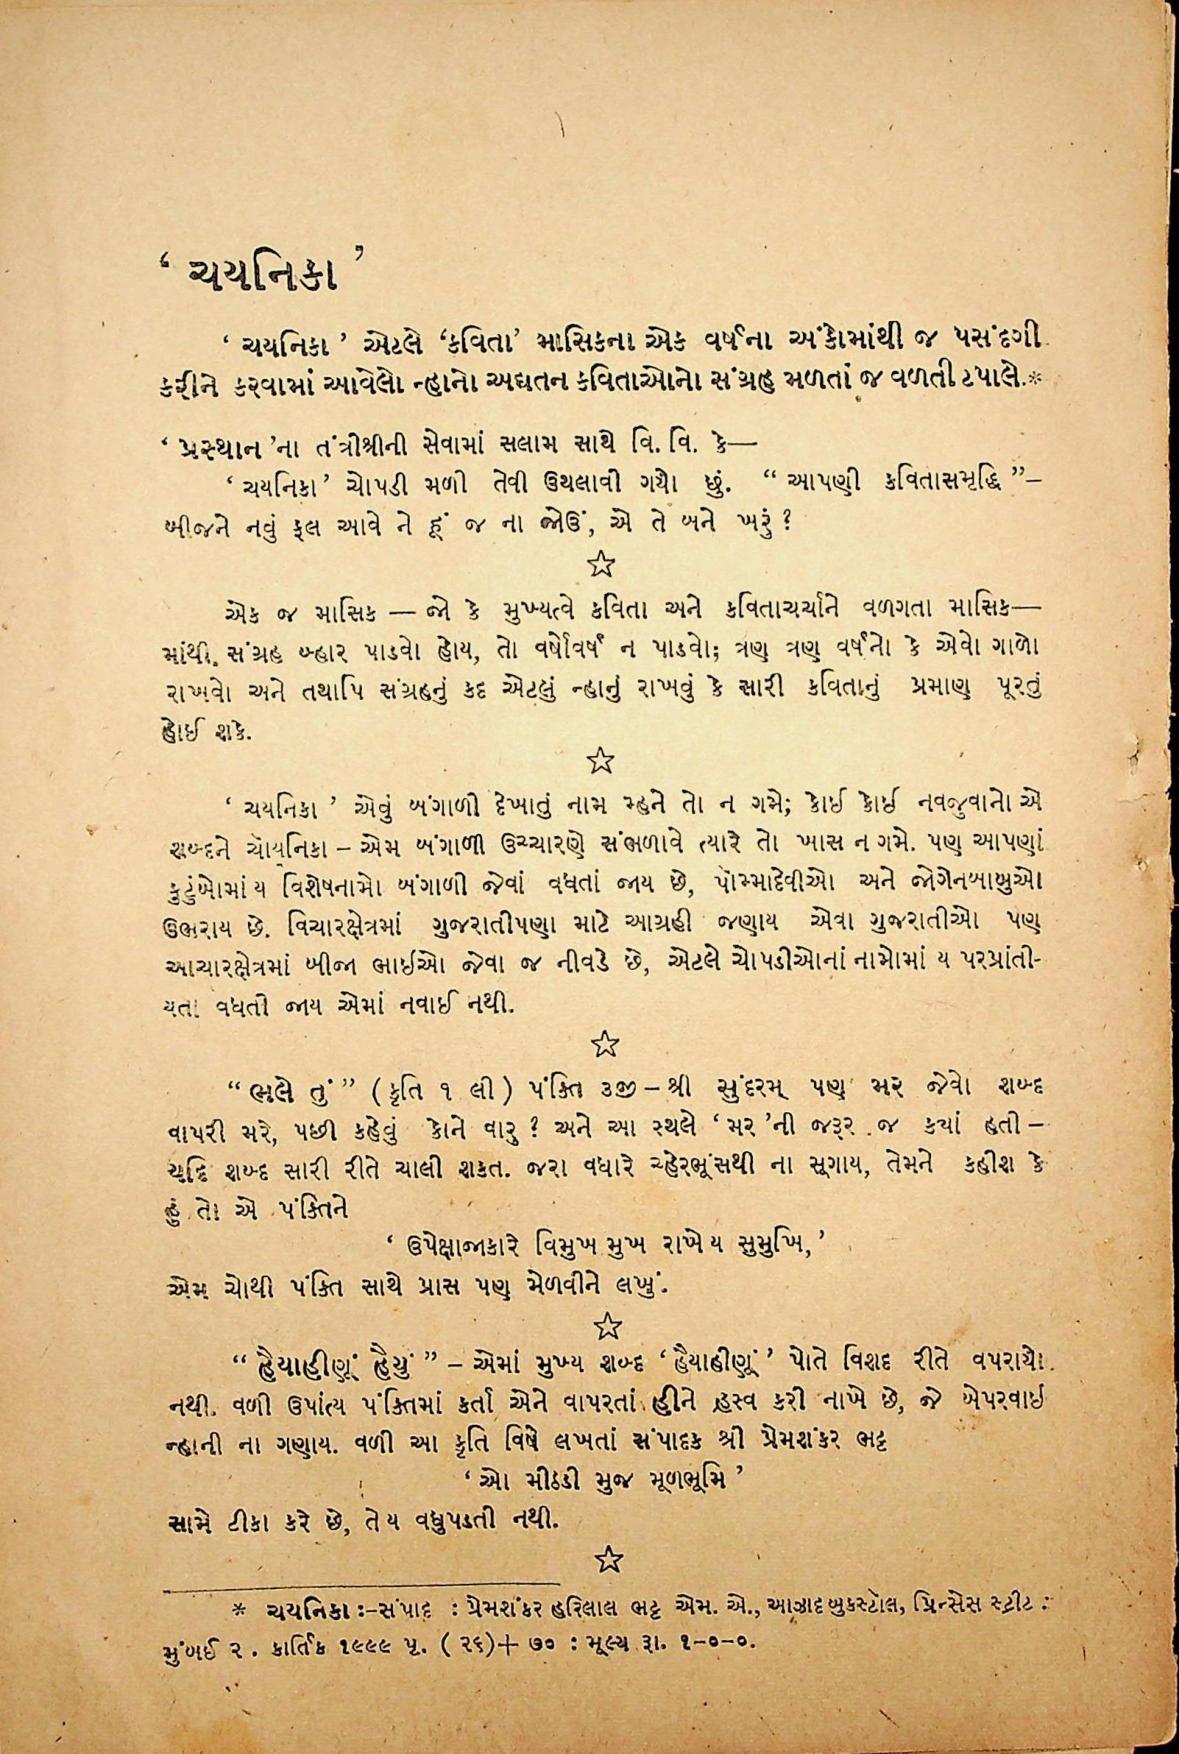 ‘ ચયનિકા ’
‘ ચયનિકા ’ એટલે ‘કવિતા’ માસિકના એક વર્ષના અંકોમાંથી જ પસંદગી
કરીને કરવામાં આવેલો ન્હાનો અદ્યતન કવિતાઓનો સંગ્રહ મળતાં જ વળતી ટપાલે.*
‘ પ્રસ્થાન ’ના તંત્રીશ્રીની સેવામાં સલામ સાથે વિ. વિ. કે—
‘ ચયનિકા ’ ચોપડી મળી તેવી ઉથલાવી ગયો છું. “ આપણી કવિતાસમૃદ્ધિ ”–
બીજને નવું ફલ આવે ને હૂં જ ના જોઉં, એ તે બને ખરું ?
☆
એક જ માસિક — જો કે મુખ્યત્વે કવિતા અને કવિતાચર્ચાને વળગતા માસિક—
માંથી સંગ્રહ બ્હાર પાડવો હોય, તો વર્ષોવર્ષ ન પાડવો; ત્રણ ત્રણ વર્ષનો કે એવો ગાળો
રાખવો અને તથાપિ સંગ્રહનું કદ એટલું ન્હાનું રાખવું કે સારી કવિતાનું પ્રમાણ પૂરતું
હોઈ શકે.
☆
‘ ચયનિકા ’ એવું બંગાળી દેખાતું નામ મ્હને તો ન ગમે; કોઈ કોઈ નવજુવાનો એ
શબ્દને ચૉયનિકા – એમ બંગાળી ઉચ્ચારણે સંભળાવે ત્યારે તો ખાસ ન ગમે. પણ આપણાં
કુટુંબોમાં ય વિશેષનામો બંગાળી જેવાં વધતાં જાય છે, પૉમ્માદેવીઓ અને જોગેનબાબુઓ
ઉભરાય છે. વિચારક્ષેત્રમાં ગુજરાતીપણા માટે આગ્રહી જણાય એવા ગુજરાતીઓ પણ
આચારક્ષેત્રમાં બીજા ભાઈઓ જેવા જ નીવડે છે, એટલે ચોપડીઓનાં નામોમાં ય પરપ્રાંતી-
યતા વધતી જાય એમાં નવાઈ નથી.
☆
“ ભલે તું ” ( કૃતિ ૧ લી ) પંક્તિ ૩જી – શ્રી સુંદરમ્ પણ મર જેવો શબ્દ
વાપરી મરે, પછી કહેવું કોને વારુ ? અને આ સ્થલે ‘ મર ’ની જરૂર જ ક્યાં હતી –
યદિ શબ્દ સારી રીતે ચાલી શકત. જરા વધારે ચ્હેરભૂંસથી ના સૂગાય, તેમને કહીશ કે
હું તો એ પંક્તિને
‘ ઉપેક્ષાજાકારે વિમુખ મુખ રાખે ય સુમુખિ, ’
એમ ચોથી પંક્તિ સાથે પ્રાસ પણ મેળવીને લખું.
☆
“ હૈયાહીણૂં હૈયું ” – એમાં મુખ્ય શબ્દ ‘ હૈયાહીણૂં ’ પોતે વિશદ રીતે વપરાયો
નથી. વળી ઉપાંત્ય પંક્તિમાં કર્તા એને વાપરતાં હીને હ્રસ્વ કરી નાખે છે, જે બેપરવાઈ
ન્હાની ના ગણાય. વળી આ કૃતિ વિષે લખતાં સંપાદક શ્રી પ્રેમશંકર ભટ્ટ
‘ ઓ મીઠડી મુજ મૂળભૂમિ ’
સામે ટીકા કરે છે, તે ય વધુપડતી નથી.
☆
* ચયનિકા :–સંપાદ : પ્રેમશંકર હરિલાલ ભટ્ટ એમ. એ., આઝાદ બુકસ્ટૉલ, પ્રિન્સેસ સ્ટ્રીટ :
મુંબઈ ૨ . કાર્તિક ૧૯૯૯ પૃ. ( ૨૬)+ ૭૦ : મૂલ્ય રૂા. ૧–૦–૦.